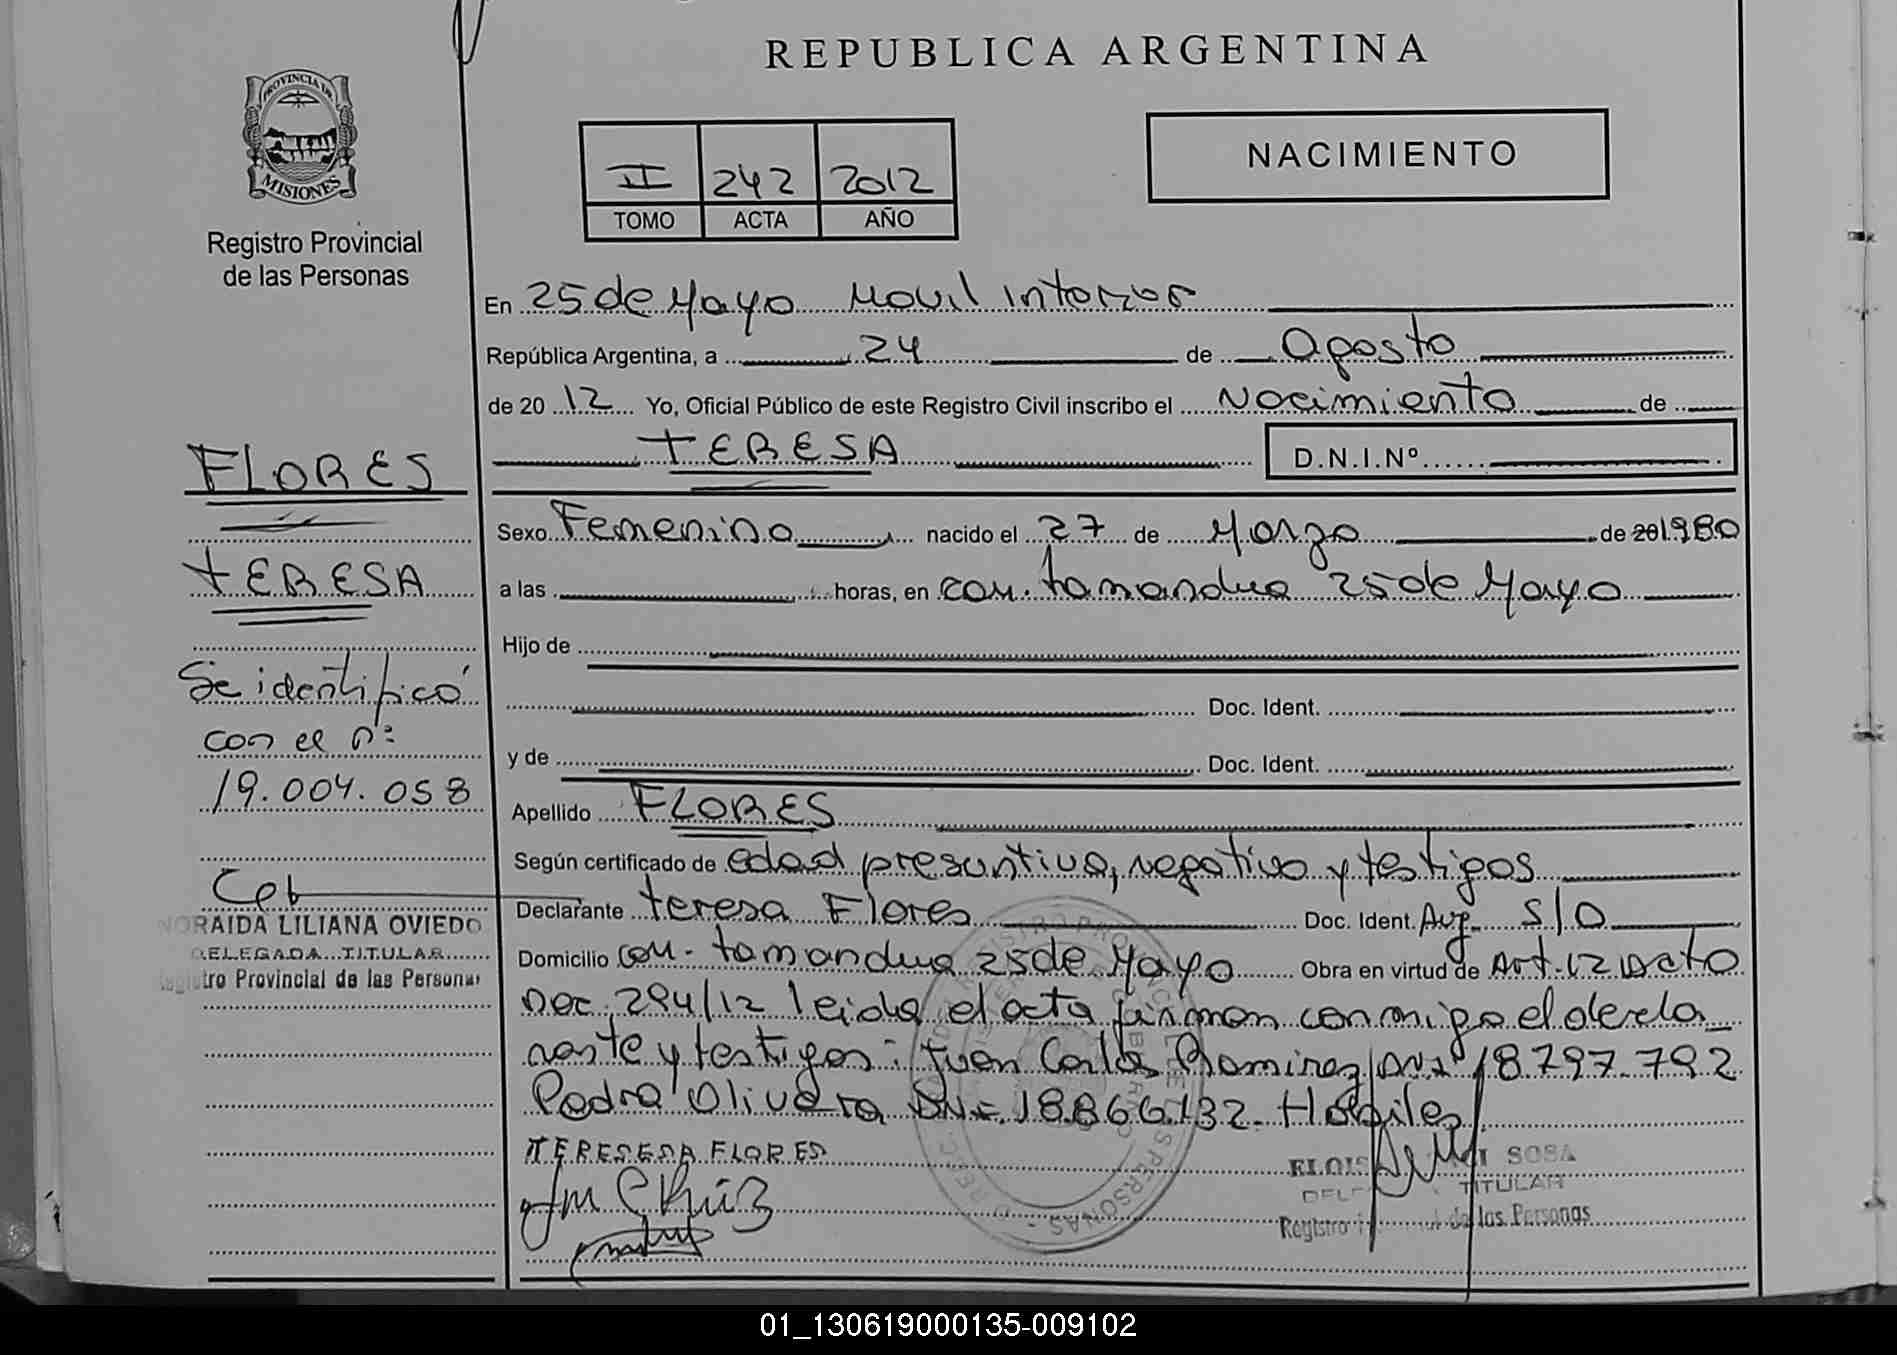 REPUBLICA ARGENTINA
PROVINCIA DE
MISIONES
Registro Provincial
de las Personas
NACIMIENTO
II 242 2012
TOMO ACTA AÑO
En 25 de Mayo Movil interior
República Argentina, a 24 de Agosto
de 20 12 Yo, Oficial Público de este Registro Civil inscribo el Nacimiento de
TERESA D.N.I.Nº
FLORES
TERESA
Se identificó
con el nº:
19.004.058
NORAIDA LILIANA OVIEDO
DELEGADA TITULAR
Registro Provincial de las Personas
Sexo Femenino nacido el 27 de Marzo de 201980
a las horas, en com. tamandua 25 de Mayo
Hijo de
Doc. Ident.
y de Doc. Ident.
Apellido FLORES
Según certificado de edad presuntiva, negativo y testigos
Declarante teresa Flores Doc. Ident. S/D
Domicilio com. tamandua 25 de Mayo Obra en virtud de Art. 1 2 Dcto
Dec. 294/12 leida el acta firman conmigo el decla
rante y testigos: Juan Carlos Ramirez DNI 18.797.792
Pedro Olivera DNI 18.866.132 Habiles
TERESESA FLORES
SOSA
TITULAR
Registro de las Personas
01_130619000135-009102